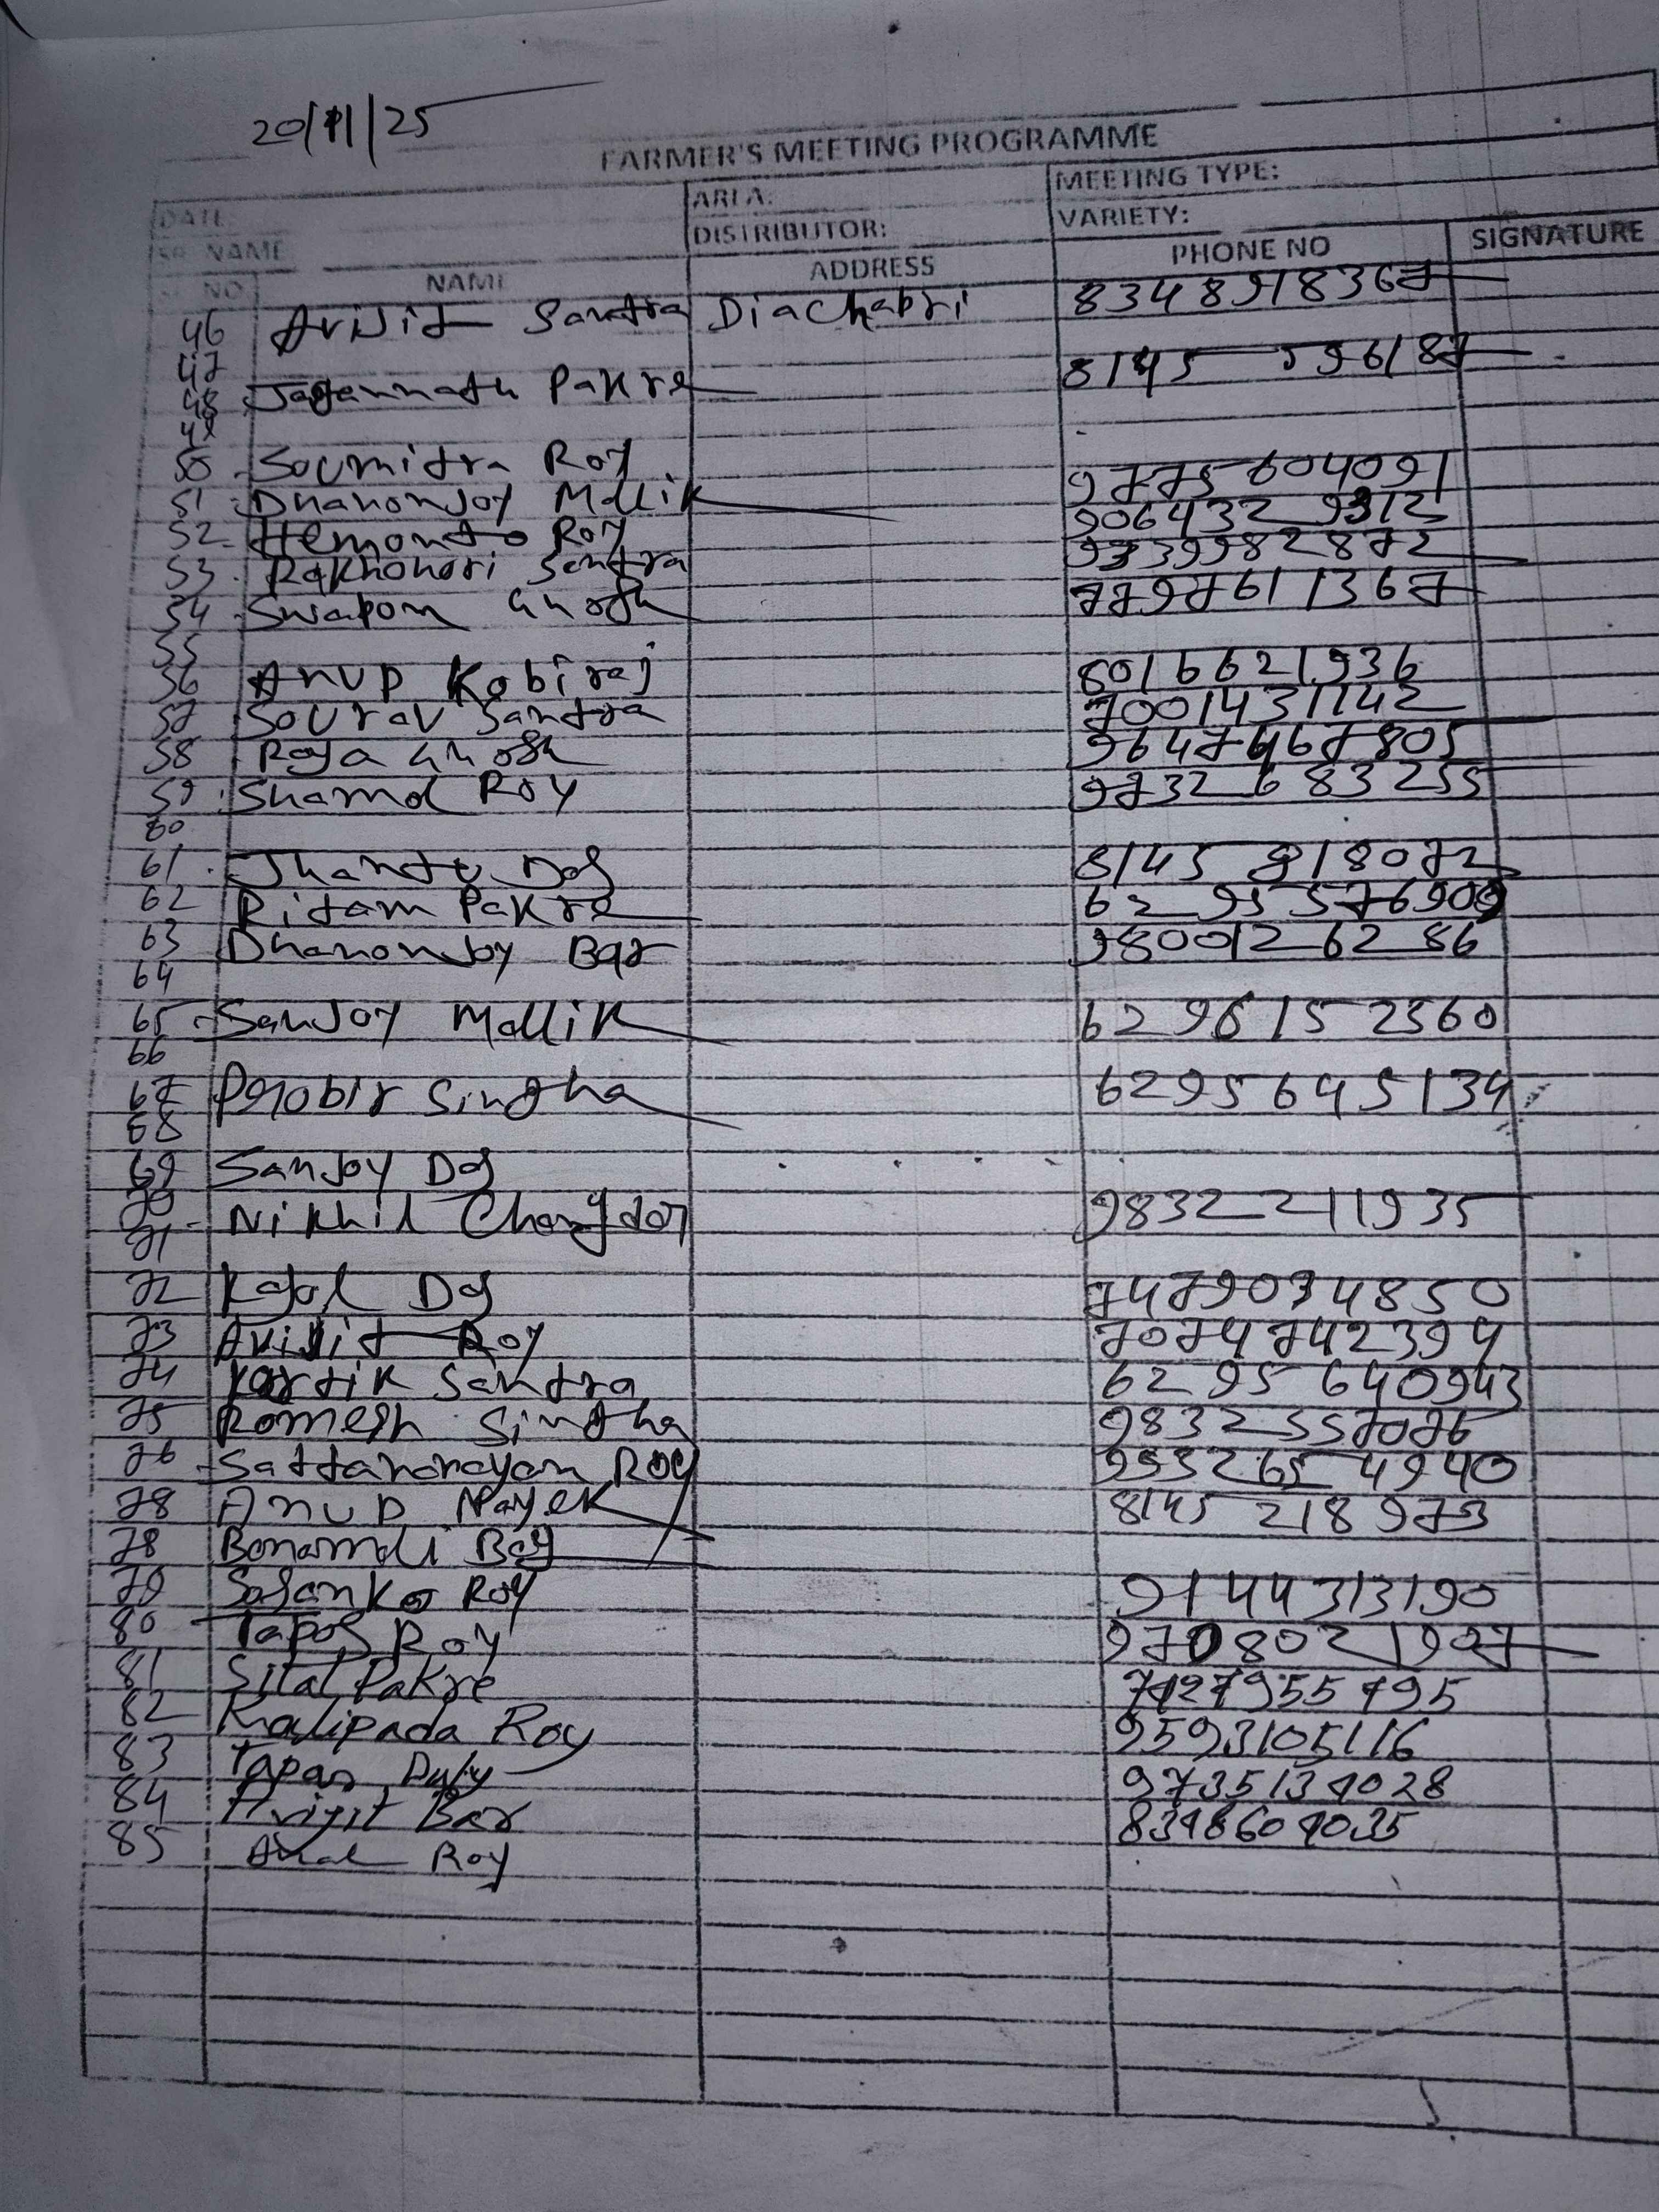 20/11/25
FARMER'S MEETING PROGRAMME
DATE AREA: MEETING TYPE:
SR NAME DISTRIBUTOR: VARIETY:
NO NAME ADDRESS PHONE NO SIGNATURE
46 Avijit Santra Diachabri 8348918367
47
48 Jagannath Pakre 8145 596187
49
50 Soumitra Roy 9775604091
51 Dhanonjoy Mallik 906432 9312
52 Hemonto Roy 9339982872
53 Rakhohori Santra 7797611367
54 Swapon Ghosh
55
56 Anup Kobiraj 8016621936
57 Sourav Santra 7001431142
58 Roja Ghosh 9647467805
59 Shamol Roy 9732683255
60
61 Jhantu Das 8145818072
62 Ritam Pakre 6295576909
63 Dhanonjoy Bar 9800126286
64
65 Sanjoy Mallik 6296152360
66
67 Probir Singha 6295645134
68
69 Sanjoy Das
70 Nikhil Chongdar 9832211935
71
72 Kajol Das 7479034850
73 Avijit Roy 7074742394
74 Kartik Santra 6295640943
75 Romesh Singha 9832557076
76 Sattanarayan Roy 9532654940
78 Anup Nayek 8145218973
78 Bonomali Bag
79 Sasanka Roy 9144313190
80 Tapos Roy 9708021927
81 Sital Pakre
82 Kalipada Roy 9593105116
83 Tapan Duly 9735134028
84 Avijit Bar 8348604035
85 Roy